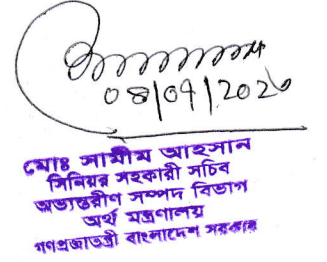 08/09/2020
মোঃ সামীম আহসান
সিনিয়র সহকারী সচিব
অভ্যন্তরীণ সম্পদ বিভাগ
অর্থ মন্ত্রণালয়
গণপ্রজাতন্ত্রী বাংলাদেশ সরকার